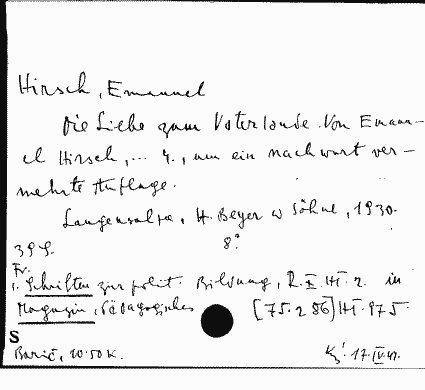 Hirsch, Emanuel
Die Liebe zum Vaterlande. Von Emanu-
el Hirsch, ... 4., um ein Nachwort ver-
mehrte Auflage.
Langensalza, H. Beyer & Söhne, 1930.
39 S. 8°
Fr.
1. Schriften zur polit. Bildung, R. X Ht. 2. in
Magazin, Pädagogisches [75.286] Ht. 975.
S
Barić, 10.50 K. 17.IV.41.